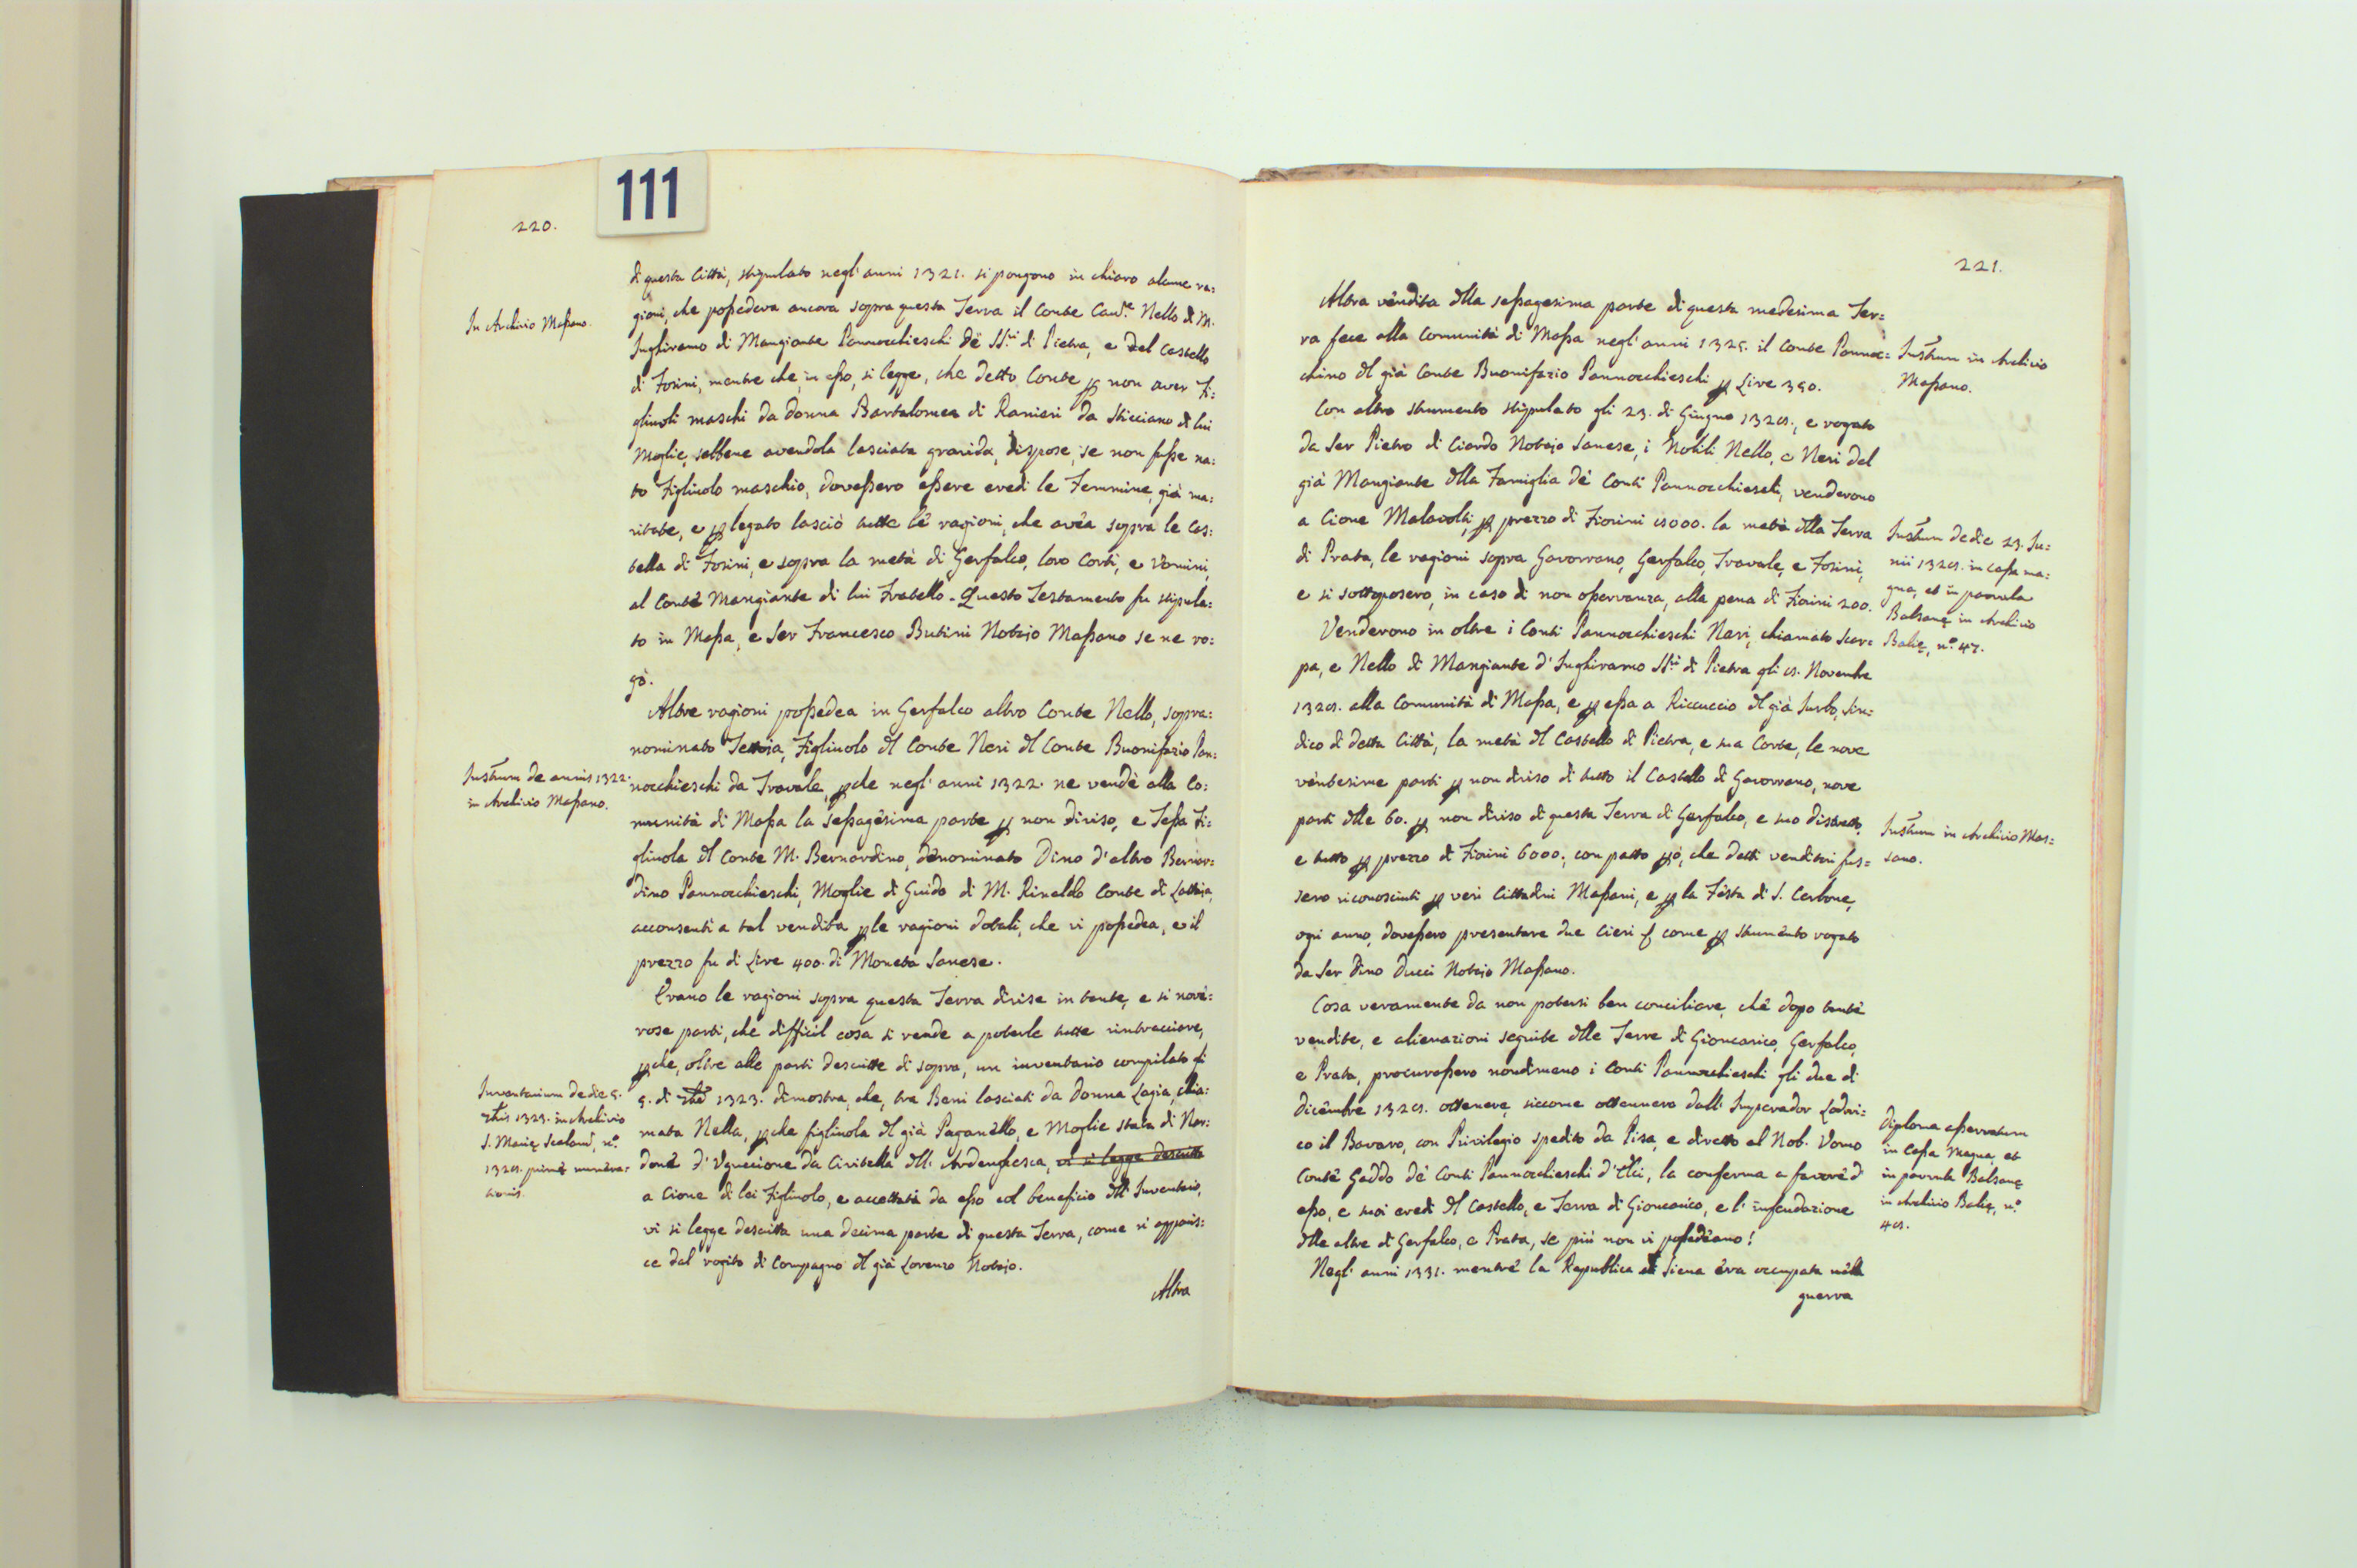 111
220.
di questa Città, stipulato negl'anni 1321. si pongono in chiaro alcune ra=
gioni, che possedeva ancora sopra questa Terra il Conte Cav.e Nello di M.
Inghiramo di Mangiante Pannocchieschi de SS.ri di Pietra, e del Castello
di Fosini, mentre che, in esso, si legge, che detto Conte p non aver Fi=
gliuoli maschi da donna Bartolomea di Ranieri da Sticciano di lui
Moglie, sebbene avendola lasciata gravida, dispose, se non fusse na=
to Figliuolo maschio, dovessero essere eredi le Femmine, già ma=
ritate, e p legato lasciò tutte le ragioni, che avea sopra le Cas=
tella di Fosini, e sopra la metà di Gerfalco, loro Corti, e Uomini,
al Conte Mangiante di lui Fratello. Questo Testamento fu stipula=
to in Massa, e Ser Francesco Butini Notajo Massano se ne ro=
gò.
In Archivio Massano.
Altre ragioni possedea in Gerfalco altro Conte Nello, sopra=
nominato Tettoia, Figliuolo dl Conte Neri dl Conte Buonifazio Pan=
nocchieschi da Travale, pche negl'anni 1322. ne vendè alla Co=
munità di Massa la sessagesima parte p non diviso, e Tessa Fi=
gliuola dl Conte M. Bernardino, denominato Dino d'altro Bernar=
dino Pannocchieschi, Moglie di Guido di M. Rinaldo Conte di Lattaja,
acconsentì a tal vendita p le ragioni dotali, che vi possedea, e il
prezzo fu di Lire 400. di Moneta Sanese.
Instrum de annis 1322.
in Archivio Massano.
Erano le ragioni sopra questa Terra divise in tante, e si nove=
rose parti, che difficil cosa si rende a poterle tutte rintracciare,
pche, oltre alle parti descritte di sopra, un inventario compilato gli
5. di 1323. dimostra, che, tra Beni lasciati da Donna Lagia, chia=
mata Nella, pche figliuola dl già Paganello, e Moglie stata di Nar=
done d'Uguccione da Civitella dll'Ardenghesca, vi si legge descritta
a Cione di lei Figliuolo, e accettata da esso col beneficio dll'Inventario,
vi si legge descritta una decima parte di questa Terra, come vi apparis=
ce dal rogito di Compagno dl già Lorenzo Notajo.
Inventarium de die 5.
1323. in Archivio
S. Marię Scalarũ, n.o
1329. primę numera=
tionis.
Altra
221.
Altra vendita dlla sessagesima parte di questa medesima Ter=
ra fece alla Comunità di Massa negl'anni 1325. il Conte Pannoc=
chino dl già Conte Buonifazio Pannocchieschi p Lire 350.
Instrum in Archivio
Massano.
Con altro strumento stipulato gli 23. di Giugno 1329., e rogato
da Ser Pietro di Ciardo Notajo Sanese, i Nobili Nello, e Neri del
già Mangiante dlla Famiglia de' Conti Pannocchieschi, venderono
a Cione Malavolti, p prezzo di Fiorini 9000. la metà dlla Terra
di Prata, le ragioni sopra Gavorrano, Gerfalco, Travale, e Fosini,
e si sottoposero, in caso di non osservanza, alla pena di Fiorini 200.
Instrum de die 23. Ju=
nii 1329. in Cassa ma=
gna, et in parvula
Balzanę in Archivio
Balię, n.o 47.
Venderono in oltre i Conti Pannocchieschi Neri, chiamato Scar=
pa, e Nello di Mangiante d'Inghiramo SS.ri di Pietra gli 9. Novembre
1329. alla Comunità di Massa, e p essa a Riccuccio dl già Surbo, Sin=
dico di detta Città, la metà dl Castello di Pietra, e sua Corte, le nove
ventesime parti p non diviso di tutto il Castello di Gavorrano, nove
parti dlle 60. p non diviso di questa Terra di Gerfalco, e suo distretto,
e tutto p prezzo di Fiorini 6000., con patto pò, che detti venditori fus=
sero riconosciuti p veri Cittadini Massani, e p la Festa di S. Cerbone,
ogni anno, dovessero presentare due Cieri, come p strumento rogato
da Ser Dino Ducci Notajo Massano.
Instrum in Archivio Mas=
sano.
Cosa veramente da non potersi ben conciliare, che dopo tante
vendite, e alienazioni seguite dlle Terre di Gioncarico, Gerfalco,
e Prata, procurassero nondimeno i Conti Pannocchieschi gli due di
Dicembre 1329. ottenere, siccome ottennero dall'Imperador Lodovi=
co il Bavaro, con Privilegio spedito da Pisa, e diretto al Nob. Uomo
Conte Gaddo de' Conti Pannocchieschi d'Elci, la conferma a favore d'
esso, e suoi eredi dl Castello, e Terra di Gioncarico, e l'infeudazione
dlle altre di Gerfalco, e Prata, se più non vi possedeano!
Diploma asservatum
in Cassa Magna, et
in parvula Balzanę
in Archivio Balię, n.o
49.
Negl'anni 1331. mentre la Republica di Siena era occupata nella
guerra